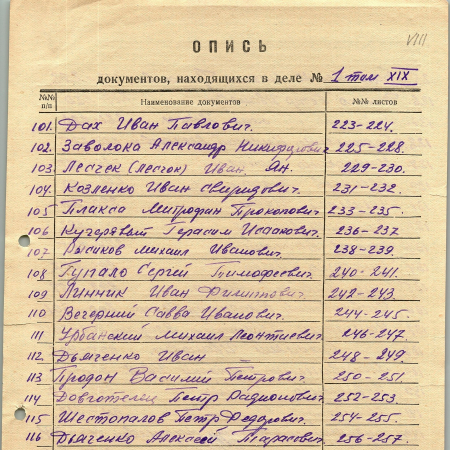 VIII
ОПИСЬ
документов, находящихся в деле № 1 том XIX
№№ п/п Наименование документов №№ листов
101. Дах Иван Павлович. 223-224.
102. Заволока Александр Никифорович 225-228.
103. Лесчек (Лесчок) Иван Ян. 229-230.
104. Козленко Иван Свиридович. 231-232.
105 Плакса Митрофан Прокопович. 233-235.
106 Кучерявый Герасим Исакович. 236-237
107 Рысиков Михаил Иванович. 238-239.
108 Гупало Сергей Тимофеевич. 240-241.
109 Линник Иван Филиппович. 242-243.
110 Вечерний Савва Иванович. 244-245.
111 Урбанский Михаил Леонтиевич. 246-247.
112 Дьяченко Иван 248-249.
113 Продан Василий Петрович. 250-251.
114 Довготелец Петр Радионович. 252-253.
115 Шестопалов Петр Федорович. 254-255.
116 Дьяченко Алексей Тарасович. 256-257.